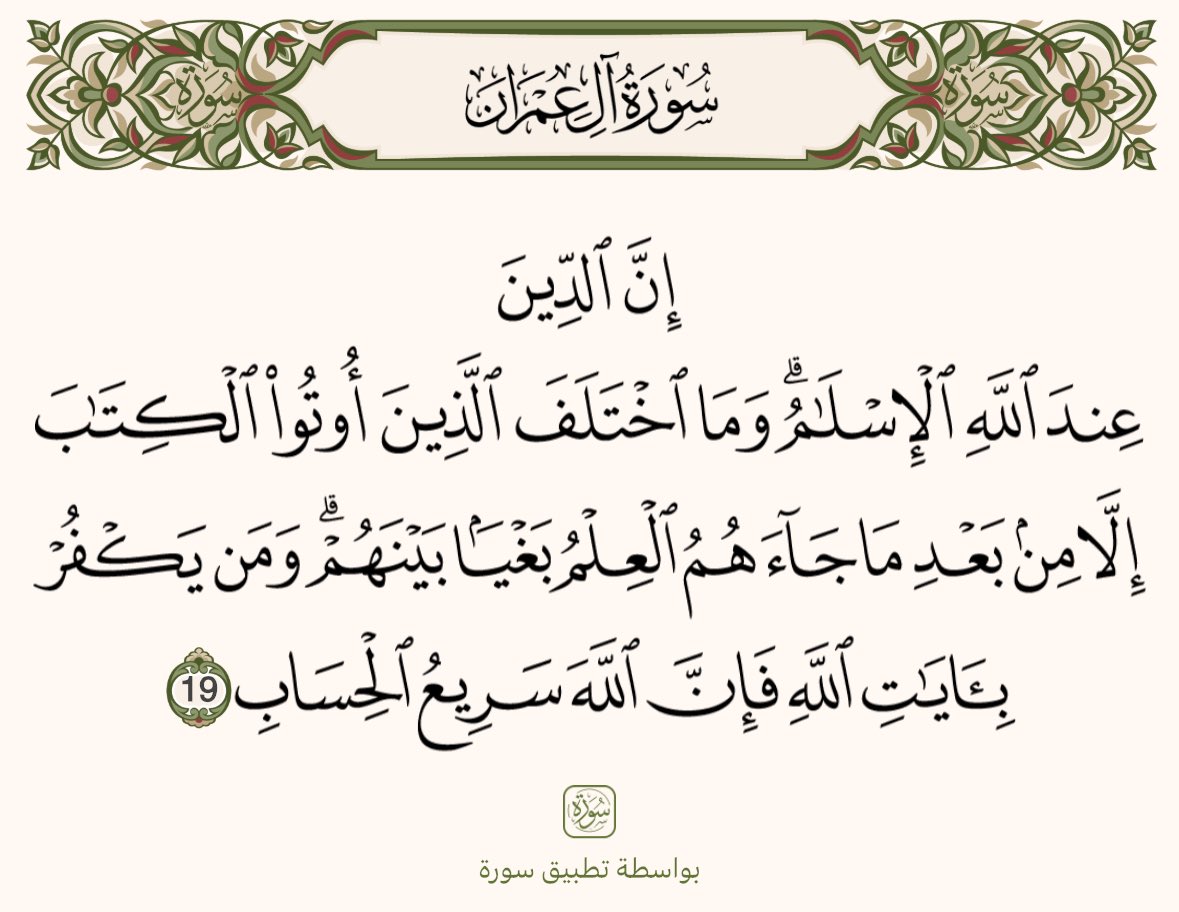 سُورَةُ آلِ عِمۡرَانَ
سُورَة
سُورَة
إِنَّ ٱلدِّينَ
عِندَ ٱللَّهِ ٱلۡإِسۡلَٰمُۗ وَمَا ٱخۡتَلَفَ ٱلَّذِينَ أُوتُواْ ٱلۡكِتَٰبَ
إِلَّا مِنۢ بَعۡدِ مَا جَآءَهُمُ ٱلۡعِلۡمُ بَغۡيَۢا بَيۡنَهُمۡۗ وَمَن يَكۡفُرۡ
بِـَٔايَٰتِ ٱللَّهِ فَإِنَّ ٱللَّهَ سَرِيعُ ٱلۡحِسَابِ 19
سُورَة
بواسطة تطبيق سورة